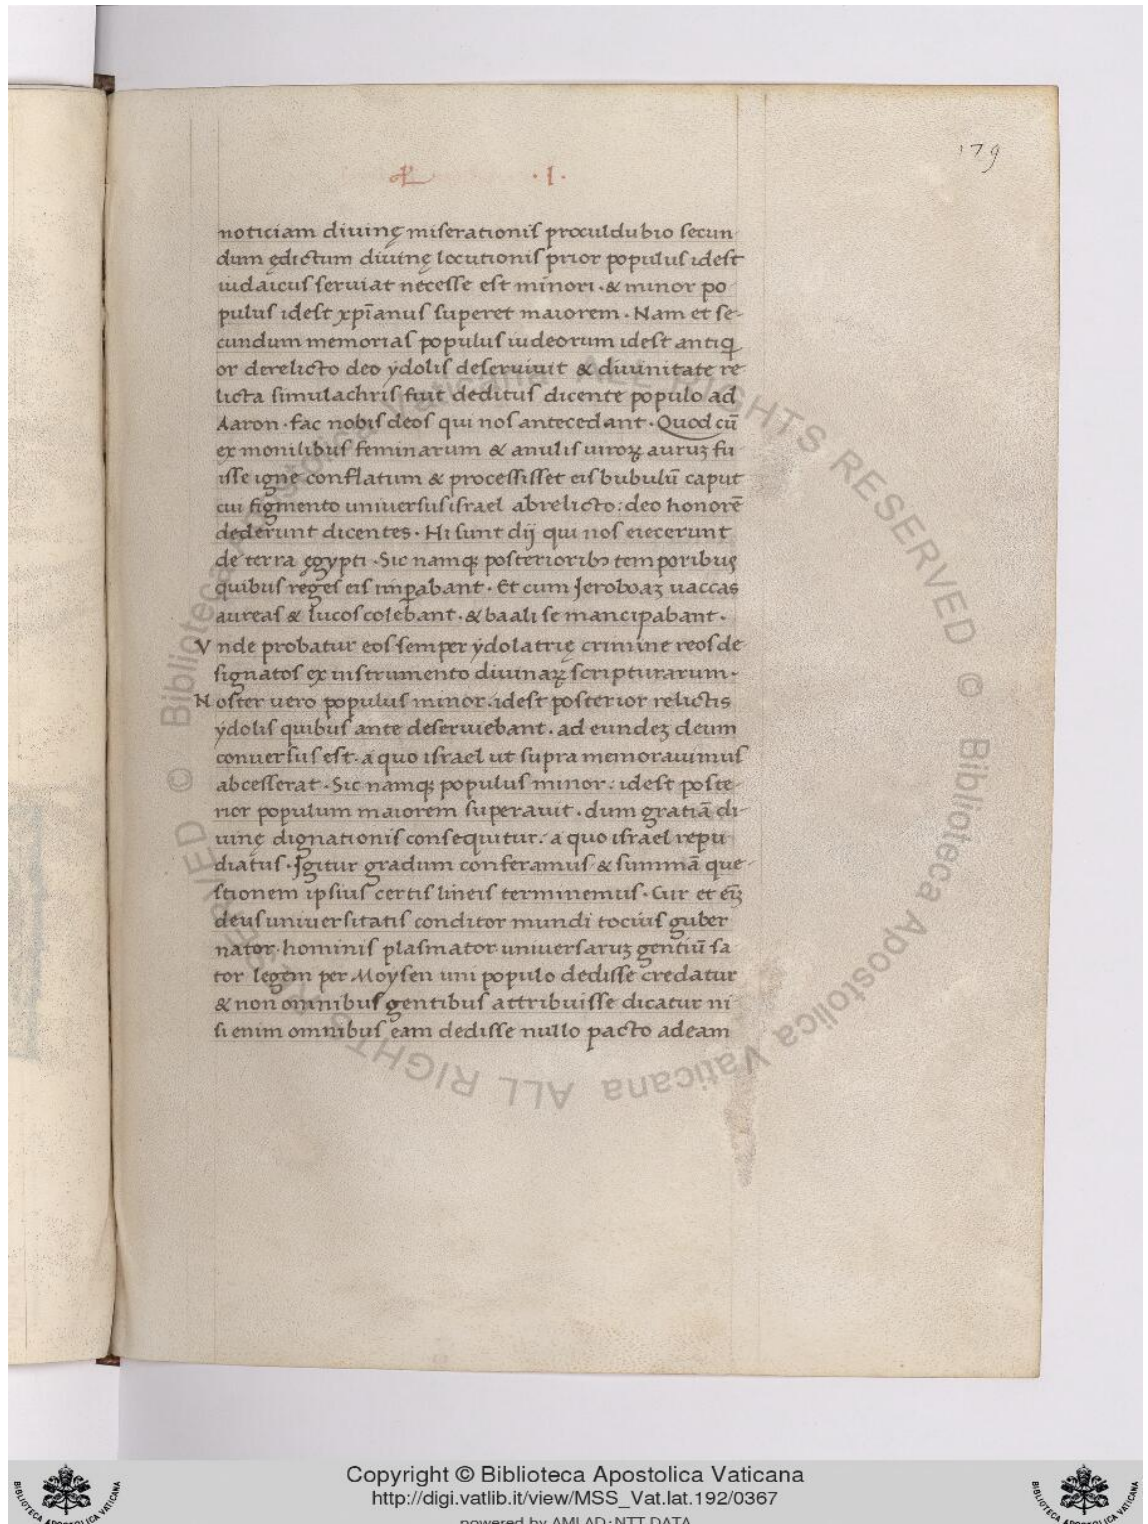 ·I·
179
noticiam diuinę miserationis proculdubio secun
dum ędictum diuinę locutionis prior populus idest
iudaicus seruiat necesse est minori · & minor po
pulus idest xp̄ianus superet maiorem · Nam et se-
cundum memorias populus iudeorum idest antiq
or derelicto deo ẏdolis deseruiuit & diuinitate re
licta simulachris fuit deditus dicente populo ad
Aaron · fac nobis deos qui nos antecedant · Quod cū
ex monilibus feminarum & anulis uiroꝝ auruꝫ fu
isse igne conflatum & processisset eis bubulū caput
cui figmento uniuersus israel abrelicto: deo honorē
dederunt dicentes · Hi sunt dij qui nos eiecerunt
de terra ęgypti · Sic namqꝫ posterioribꝰ temporibus
quibus reges eis imꝑabant · Et cum Jeroboaꝫ uaccas
aureas & lucos colebant · & baali se mancipabant ·
Vnde probatur eos semper ẏdolatrię crimine reos de
signatos ex instrumento diuinaꝝ scripturarum ·
Noster uero populus minor · idest posterior relictis
ẏdolis quibus ante deseruiebant · ad eundeꝫ deum
conuersus est · a quo israel ut supra memorauimus
abcesserat · Sic namqꝫ populus minor : idest poste-
rior populum maiorem superauit · dum gratiā di
uinę dignationis consequitur : a quo israel repu
diatus · Igitur gradum conferamus & summā que-
stionem ipsius certis lineis terminemus · Cur et eīꝫ
deus uniuersitatis conditor mundi tocius guber
nator · hominis plasmator uniuersaruꝫ gentiū sa
tor legem per Moysen uni populo dedisse credatur
& non omnibus gentibus attribuisse dicatur ni
si enim omnibus eam dedisse nullo pacto adeam
Copyright © Biblioteca Apostolica Vaticana
http://digi.vatlib.it/view/MSS_Vat.lat.192/0367
powered by AMLAD·NTT DATA